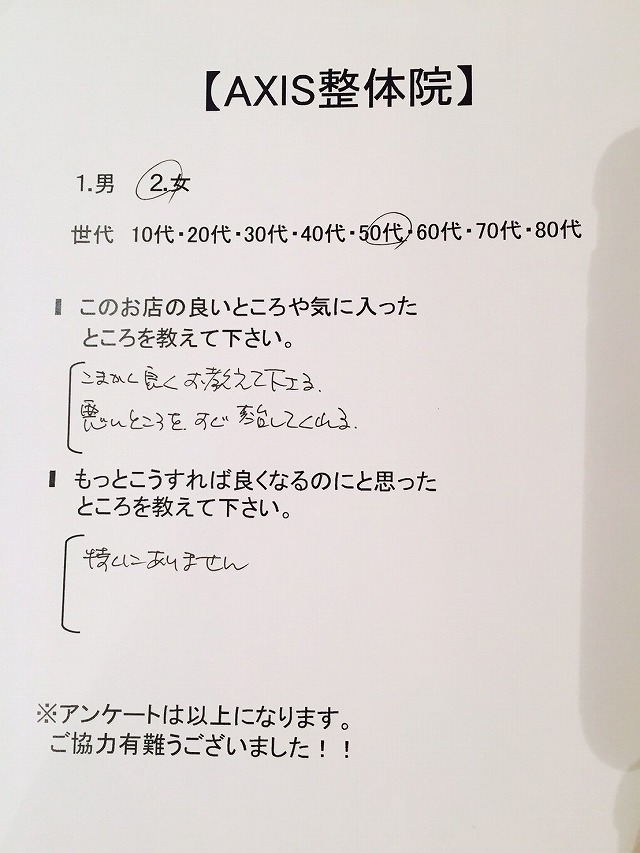 【AXIS整体院】
1.男 2.女
世代 10代・20代・30代・40代・50代・60代・70代・80代
このお店の良いところや気に入った
ところを教えて下さい。
こまかく良くお教えて下さる。
悪いところを、すぐ してくれる。
もっとこうすれば良くなるのにと思った
ところを教えて下さい。
特にありません
※アンケートは以上になります。
ご協力有難うございました！！